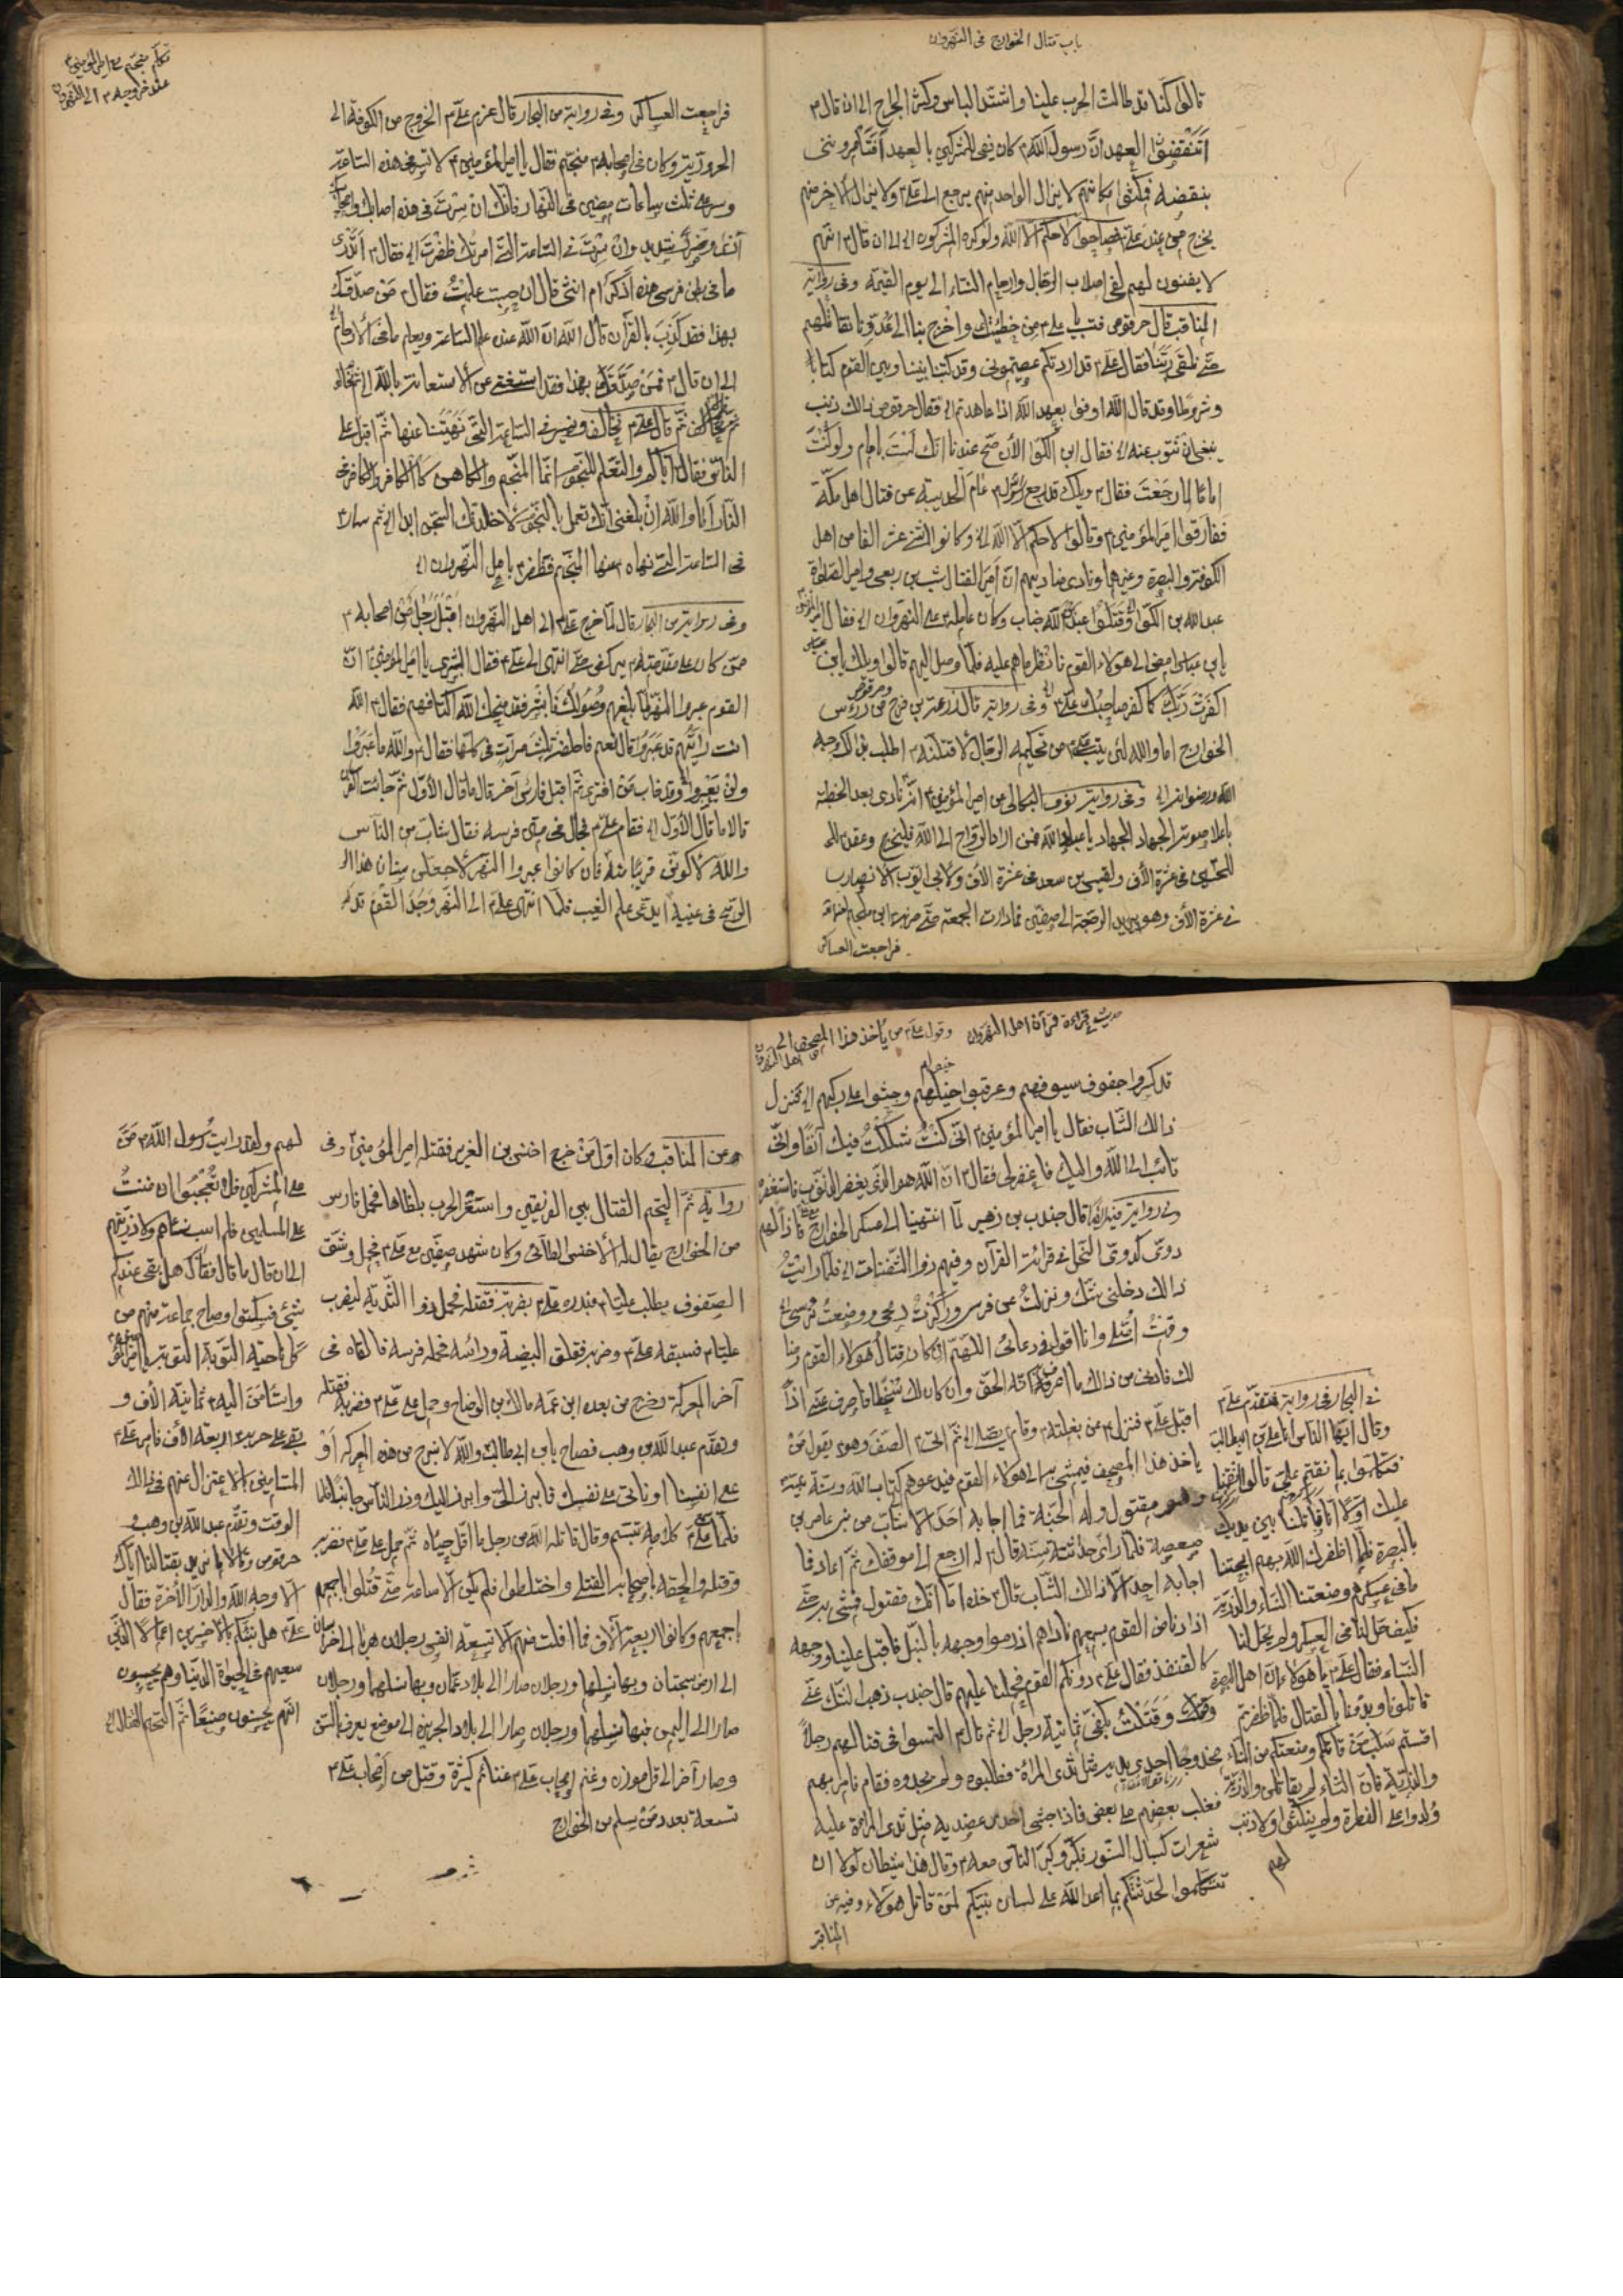 باب قتال الخوارج فى النهروان
قالوا كنا قد طالت الحرب علينا واشتد الباس وكثر الجراح الى ان قال م
اتنقضوا العهد ان رسول الله كان يفى للمشركين بالعهد
بنقضه فمكثوا مكانهم لا يزال الواحد منهم يرجع الى على م ولا يزال الاخر منهم
يخرج من عند على م فصاحوا لا حكم الا لله ولو كره المشركون اه الى ان قال م انهم
لا يفنون انهم لفى اصلاب الرجال وارحام النساء الى يوم القيمة وفى رواية
المناقب قال حرقوص فتب يا على م من خطيئتك واخرج بنا الى عدونا نقاتلهم
حتى نلقى ربنا فقال على م قد اردتكم فعصيتمونى وقد كتبنا بيننا وبين القوم كتابا
وشروطا وقد قال الله اوفوا بعهد الله اذا عاهدتم اه فقال حرقوص ذالك ذنب
ينبغى ان تتوب عنه اه فقال ابن الكوا الأن صح عندنا انك لست بامام ولو كنت
اماما لما رجعت فقال م ويلك قد رجع الرسول م عام الحديبية عن قتال اهل مكة
ففارقوا امير المؤمنين م وقالوا لا حكم الا لله اه وكانوا اثنى عشر الفا من اهل
الكوفة والبصرة وغيرهما ونادى مناديهم ان امير القتال شبث بن ربعى وامير الصلوة
عبد الله بن الكوا اه وقتلوا عبد الله خباب وكان عامله م على النهروان اه فقال امير المؤمنين
يابن عباس امض الى هؤلاء القوم فانظر ما هم عليه فلما وصل اليهم قالوا ويلك يابن عباس
اكفرت بربك كما كفر صاحبك على م اه وفى رواية قال زرعة بن برج وحرقوص من رؤس
الخوارج اما والله لئن يتب على م من تحكيمه الرجال لاقتلنه م اطلب بذالك وجه
الله ورضوانه اه وفى رواية نوف البكالى عن امير المؤمنين م انه نادى بعد الخطبة
باعلا صوته الجهاد الجهاد يا عباد الله فمن اراد الرواح الى الله فليخرج وعقد للحـ
للحسين فى عشرة الأف ولقيس بن سعد فى عشرة الأف ولأبى ايوب الأنصارى
فى عشرة الأف وهو يريد الرجعة الى صفين فما دارت الجمعة حتى ضربه ابن ملجم لعنه الله
فراجعت العساكر
تكلم منجم مع امير المؤمنين م
عند خروجه م الى النهروان
فراجعت العساكر وفى رواية من البحار قال عزم على م الخروج من الكوفة الى
الحرورية وكان فى اصحابه م منجم فقال يا امير المؤمنين م لا تسر فى هذه الساعة
وسر على ثلث ساعات مضين فى النهار فانك ان سرت فى هذه اصابك واصحابك
اذى وضر شديد وان سرت فى الساعة التى امرتك ظفرت اه فقال م اتدرى
ما فى بطن فرسى هذه اذكر ام انثى قال ان حسبت علمت فقال م من صدقك
بهذا فقد كذب بالقرآن قال الله ان الله عنده علم الساعة ويعلم ما فى الأرحام
الى ان قال م فمن صدقك بهذا فقد استغنى عن الاستعانة بالله
ثم قال على م نخالف ونسير فى الساعة التى نهيتنا عنها ثم اقبل على
الناس فقال اياكم والتعلم للنجوم انما المنجم والكاهن كالكافر والكافر فى
النار اما والله ان بلغنى انك تعمل بالنجوم لأخلدنك السجن ابدا اه ثم سار م
فى الساعة التى نهاه م عنها المنجم فظفر م باهل النهروان اه
وفى رواية من البحار قال لما خرج على م الى اهل النهروان اقبل رجل من اصحابه م
ممن كان على مقدمته م يركض حتى انتهى الى على م فقال البشرى يا امير المؤمنين م ان
القوم عبروا النهر لما بلغهم وصولك فابشر فقد منحك الله اكتافهم فقال م الله
انت رأيتهم قد عبروا قال نعم فاحلفه ثلث مرات فى كلها فقال م والله ما عبروا
ولن يعبروا اه وقد خاب من افترى ثم اقبل فارس آخر قال ما قال الأول ثم جائت
قالا ما قال الأول اه فقام على م فجال فى متن فرسه فقال شاب من الناس
والله لأكونن قريبا منه فان كانوا عبروا النهر لأجعلن سنان هذا الر
الرمح فى عينيه ايدعى علم الغيب فلما انتهى على م الى النهر وجد القوم قد كـ
حديث قراءة قرآن اهل النهروان وقول على م من ياخذ هذا المصحف الى
اهل النهروان
قد كسروا جفون سيوفهم وعرقبوا خيلهم وجثوا على ركبهم اه فنزل
ذالك الشاب فقال يا امير المؤمنين م انى كنت شككت فيك آنفا وانى
تائب الى الله واليك فاغفر لى فقال م ان الله هو الذى يغفر الذنوب فاستغفره
وفى رواية قال جندب بن زهير لما انتهينا الى عسكر الخوارج فاذا لهم
دوى كدوى النحل فى قرائة القرآن وفيهم ذوا الثفنات اه فلما رايت
ذالك دخلنى شك ونزلت عن فرسى وركزت رمحى ووضعت ترسى اه
وقمت اصلى وانا اقول فى دعائى اللهم ان كان قتال هؤلاء القوم رضا
لك فارنى من ذالك ما اعرف به انه الحق وان كان لك سخطا فاصرف عنى اذ
اقبل على م فنزل م عن بغلته م وقام يصلى اه ثم اتى م الصف وهو م يقول من
ياخذ هذا المصحف فيمشى به الى هؤلاء القوم فيدعوهم كتاب الله وسنة نبيه
وهو مقتول وله الجنة فما اجابه احد الا شاب من بنى عامر بن
صعصعة فلما راى حداثة سنه قال م له ارجع الى موقفك ثم اعاد فما
اجابه احد الا ذالك الشاب قال م خذه اما انك مقتول فمشى به حتى
اذا دنا من القوم بسمعهم ناداهم اذ رموا وجهه بالنبل فاقبل علينا ووجهه
كالقنفذ فقال على م دونكم القوم فحملنا عليهم قال جندب ذهب الشك عنى
وقتلت بكفى ثمانية رجل اه ثم قال م التمسوا فى قتالهم رجلا
مخدوجا احدى يديه مثل ثدى المرأة فطلبوه ولم يجدوه فقام فامر بهم
فقلب بعضهم على بعض فاذا حبشى احد من عضديه مثل ثدى المرأة عليه
شعرات كسبال السنور فكبر وكبر الناس معه م وقال هذا شيطان لولا ان
تتكلموا لحدثتكم بما اعد الله على لسان نبيكم لمن قاتل هؤلاء وفيه عن
المناقب
فى البحار فى رواية فتقدم على م
وقال ايها الناس انا على بن ابى طالب
فتكلموا بما نقمتم على قالوا نقمنا
عليك اولا انا قاتلنا بين يديك
بالبصرة فلما اظفرك الله بهم ابحتنا
ما فى عسكرهم ومنعتنا النساء والذرية
فكيف حل لنا ما فى العسكر ولم يحل لنا
النساء فقال على م يا هؤلاء ان اهل البصرة
قاتلونا وبدؤنا بالقتال فلما ظفرتم
اقتسمتم سلب من قاتلكم ومنعتكم من النساء
والذرية فان النساء لم يقاتلن والذرية
ولدوا على الفطرة ولم ينكثوا ولا ذنب
لهم
وعن المناقب كان اول من خرج اخنس بن العزيز فقتله امير المؤمنين م وفى
رواية ثم التحم القتال بين الفريقين واستعر الحرب بلظاها فحمل فارس
من الخوارج يقال له الأخنس الطائى وكان شهد صفين مع على م فحمل وشق
الصفوف يطلب عليا م فبدره على م بضربة فقتله فحمل ذوا الثدية ليضرب
عليا م فسبقه على م وضربه ففلق البيضة ورأسه فحمله فرسه فالقاه فى
آخر المعركة وخرج من بعده ابن عمه مالك بن الوضاح وحمل على على م فضربه فقتله
وتقدم عبد الله بن وهب فصاح يابن ابى طالب والله لا نبرح من هذه المعركة او
على انفسنا او ناتى على نفسك فابرز الى وابرز اليك وذر الناس جانبا فلما
على م كلامه تبسم وقال قاتله الله من رجل ما اقل حياه ثم حمل على على م فضربه
وقتله والحقه باصحابه القتلى واختلطوا فلم يكن الا ساعة حتى قتلوا باجمعهم
اجمعهم وكانوا اربعة آلاف فما افلت منهم الا تسعة انفس رجلان هربا الى خراسان
الى ارض سجستان وبها نسلهما ورجلان صارا الى بلاد عمان وبها نسلهما ورجلان
صارا الى اليمن فيها نسلهما ورجلان صارا الى بلاد الجزيرة الى موضع يعرف بالسن
وصار آخر الى تل موزن وغنم اصحاب على م غنائم كثيرة وقتل من اصحاب على م
تسعة بعدد من سلم من الخوارج
لهم ولقد رايت رسول الله م من
على المشركين فلا تعجبوا ان مننت
على المسلمين فلم اسب نسائهم ولا ذريتهم
الى ان قال ما قال فقال هل بقى عندكم
شئ فسكتوا وصاح جماعة منهم من
كل ناحية التوبة التوبة يا امير المؤمنين
واستامن اليه م ثمانية الأف و
بقى على حربه م اربعة الأف فامر على م
المستامنين الاعتزال عنهم فى ذالك
الوقت وتقدم عبد الله بن وهب و
حرقوص وقالا ما نريد بقتالنا اياك
الا وجه الله والدار الأخرة فقال
على م هل ننبئكم بالاخسرين اعمالا الذين
سعيهم فى الحيوة الدنيا وهم يحسبون
انهم يحسنون صنعا ثم التحم القتال اه